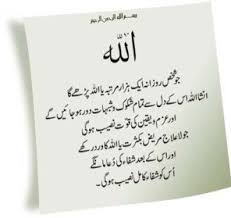 بسم اللہ الرحمن الرحیم
اللہ
جو شخص روزانہ ایک ہزار مرتبہ یا اللہ پڑھے گا
انشا اللہ اس کے دل سے تمام شکوک و شبہات دور ہو جائیں گے
اور عزم و یقین کی قوت نصیب ہو گی
جو لا علاج مریض بکثرت یا اللہ کا ورد رکھے
اور اس کے بعد شفاء کی دعا مانگے
اُس کو شفاء کامل نصیب ہو گی۔